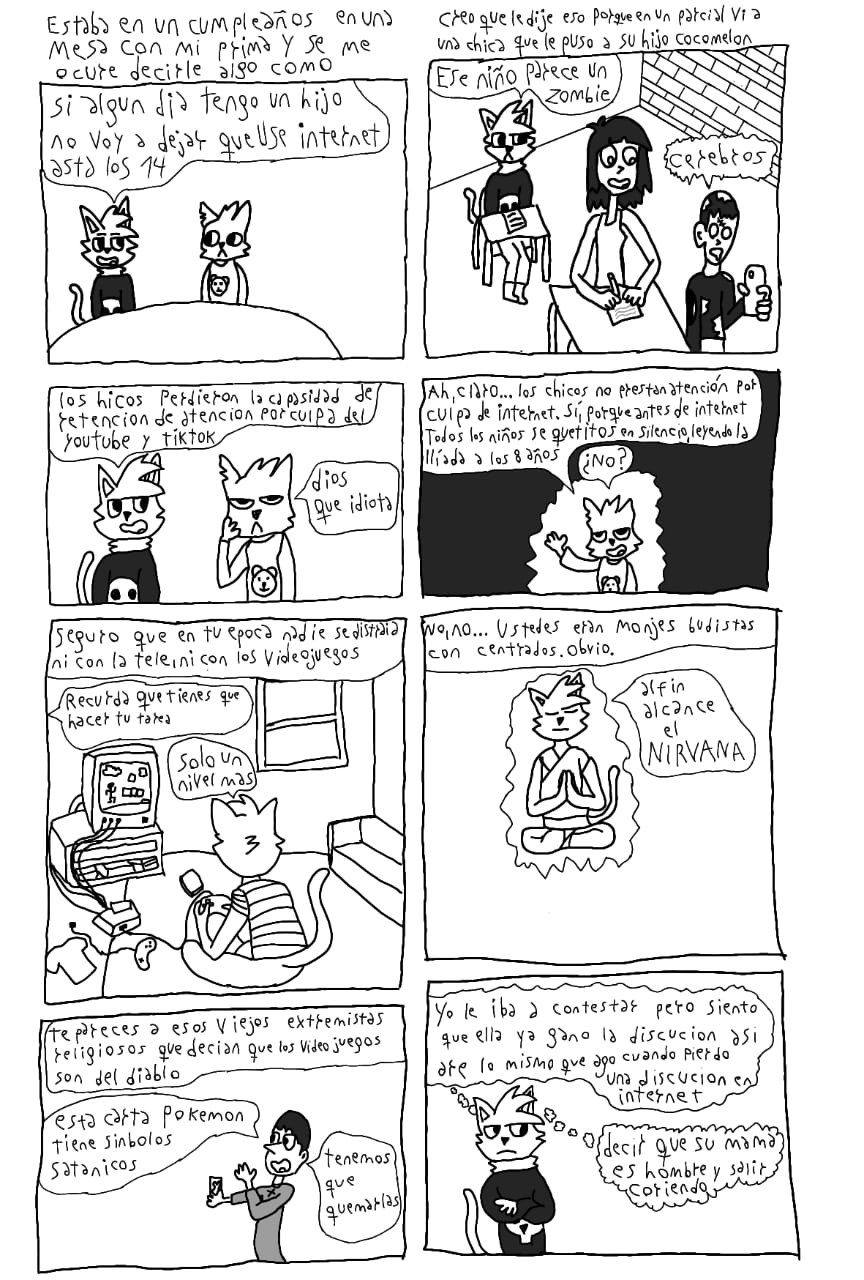 Estaba en un cumpleaños en una
mesa con mi prima y se me
ocure decirle algo como
si algun dia tengo un hijo
no voy a dejar que use internet
asta los 14
creo que le dije eso porque en un parcial vi a
una chica que le puso a su hijo cocomelon
Ese niño parece un
zombie
cerebros
los hicos perdieron la capasidad de
retencion de atencion por culpa del
youtube y tiktok
dios
que idiota
Ah, claro... los chicos no prestan atención por
culpa de internet. Sí, porque antes de internet
Todos los niños se quetitos en silencio, leyendo la
Ilíada a los 8 años
¿No?
seguro que en tu epoca nadie se distraia
ni con la tele, ni con los videojuegos
Recurda que tienes que
hacer tu tarea
solo un
nivel mas
No, no... Ustedes eran monjes budistas
con centrados. Obvio.
alfin
alcance
el
NIRVANA
te pareces a esos viejos extremistas
religiosos que decian que los video juegos
son del diablo
esta carta pokemon
tiene sinbolos
satanicos
tenemos
que
quemarlas
Yo le iba a contestar pero siento
que ella ya gano la discucion asi
are lo mismo que ago cuando pierdo
una discucion en
internet
decir que su mama
es hombre y salir
coriendo